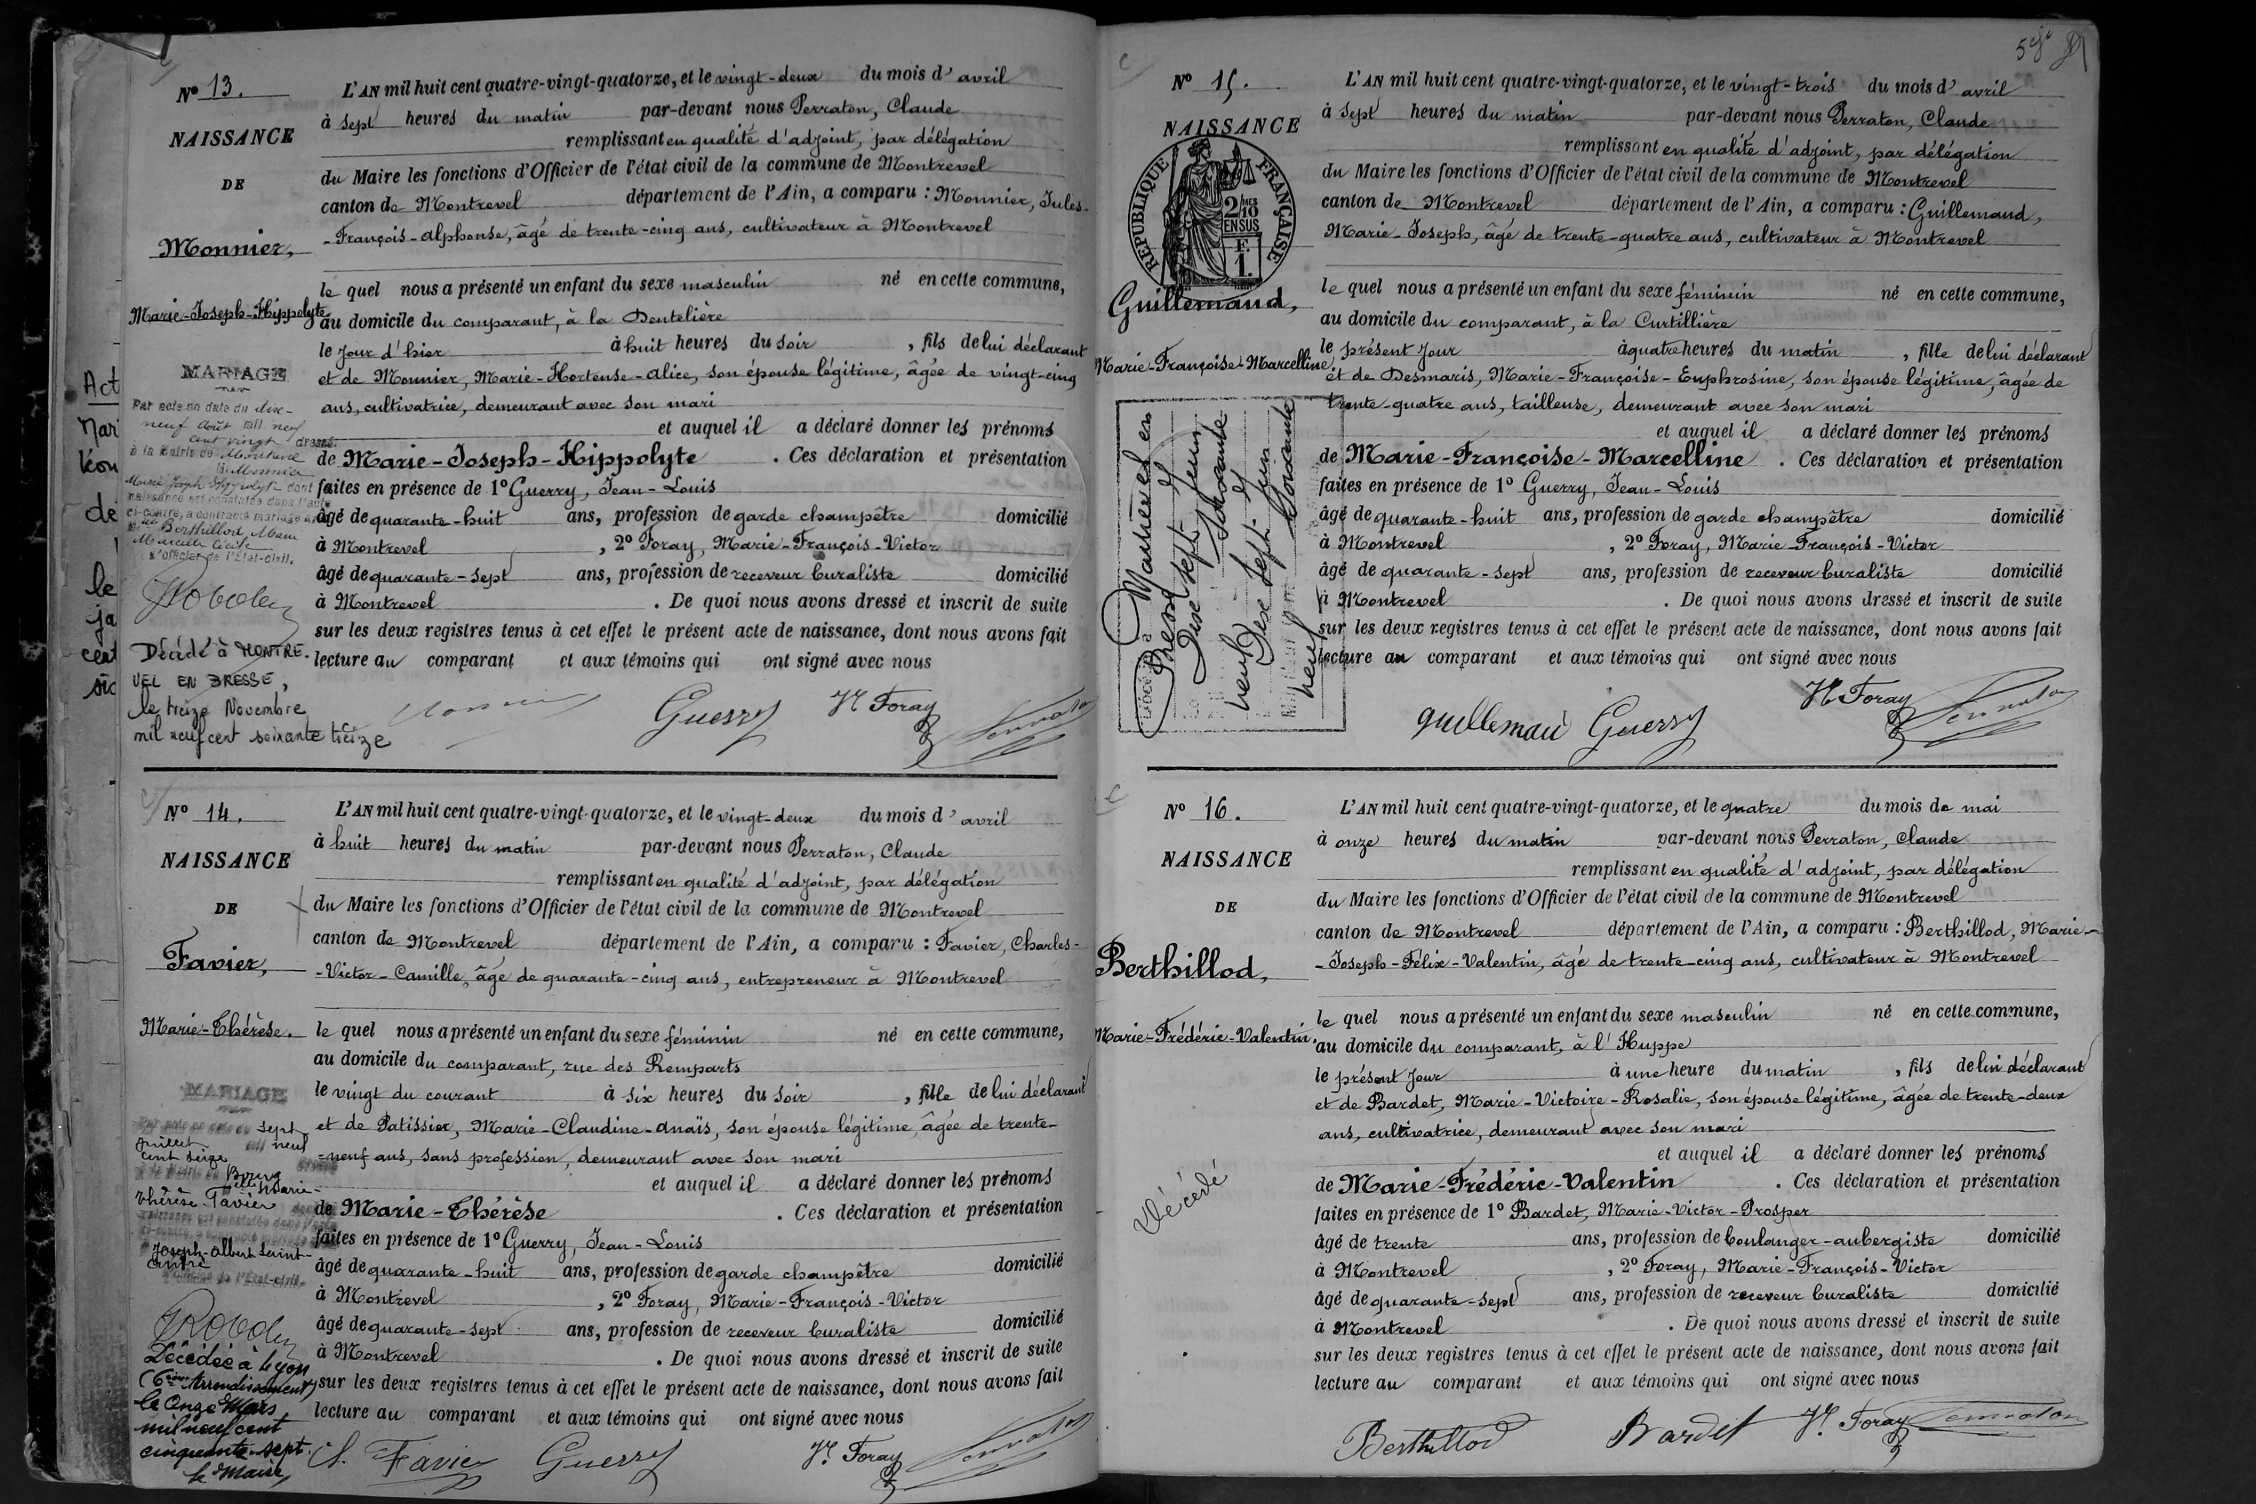 Nº 13.
NAISSANCE
DE
Monnier,
Marie-Joseph-Hippolyte
MARIAGE
Par acte en date du dix-
neuf Août mil neuf
cent vingt dressé
à la Mairie de Montrevel
Monnier
Marie Joseph Hippolyte dont
naissance est constatée dans l'acte
ci-contre, a contracté mariage avec
Berthillod, Marie
L'Officier de l'État-civil.
Décédé à MONTRE-
VEL EN BRESSE,
le treize Novembre
mil neuf cent soixante treize
L'AN mil huit cent quatre-vingt-quatorze, et le vingt-deux du mois d'avril
à sept heures du matin par-devant nous Perraton, Claude
remplissant en qualité d'adjoint, par délégation
du Maire les fonctions d'Officier de l'état civil de la commune de Montrevel
canton de Montrevel département de l'Ain, a comparu : Monnier, Jules-
-François-Alphonse, âgé de trente-cinq ans, cultivateur à Montrevel
le quel nous a présenté un enfant du sexe masculin né en cette commune,
au domicile du comparant, à la Dentelière
le jour d'hier à huit heures du soir, fils de lui déclarant
et de Monnier, Marie-Hortense-Alice, son épouse légitime, âgée de vingt-cinq
ans, cultivatrice, demeurant avec son mari
et auquel il a déclaré donner les prénoms
de Marie-Joseph-Hippolyte . Ces déclaration et présentation
faites en présence de 1º Guerry, Jean-Louis
âgé de quarante-huit ans, profession de garde champêtre domicilié
à Montrevel , 2º Foray, Marie-François-Victor
âgé de quarante-sept ans, profession de receveur buraliste domicilié
à Montrevel . De quoi nous avons dressé et inscrit de suite
sur les deux registres tenus à cet effet le présent acte de naissance, dont nous avons fait
lecture au comparant et aux témoins qui ont signé avec nous
Guerry Vr Foray Perraton
Nº 14.
NAISSANCE
DE
Favier,
Marie-Thérèse.
MARIAGE
Par acte en date du sept
juillet mil neuf
cent seize
Bourg
Marie-
Thérèse Favier
Joseph-Albert Saint-
L'Officier de l'État-civil.
Décédée à Lyon
(6ème Arrondissement)
le Onze Mars
mil neuf cent
cinquante-sept.
le Maire,
L'AN mil huit cent quatre-vingt-quatorze, et le vingt-deux du mois d'avril
à huit heures du matin par-devant nous Perraton, Claude
remplissant en qualité d'adjoint, par délégation
du Maire les fonctions d'Officier de l'état civil de la commune de Montrevel
canton de Montrevel département de l'Ain, a comparu : Favier, Charles-
-Victor-Camille, âgé de quarante-cinq ans, entrepreneur à Montrevel
le quel nous a présenté un enfant du sexe féminin né en cette commune,
au domicile du comparant, rue des Remparts
le vingt du courant à six heures du soir, fille de lui déclarant
et de Patissier, Marie-Claudine-Anaïs, son épouse légitime, âgée de trente-
-neuf ans, sans profession, demeurant avec son mari
et auquel il a déclaré donner les prénoms
de Marie-Thérèse . Ces déclaration et présentation
faites en présence de 1º Guerry, Jean-Louis
âgé de quarante-huit ans, profession de garde champêtre domicilié
à Montrevel , 2º Foray, Marie-François-Victor
âgé de quarante-sept ans, profession de receveur buraliste domicilié
à Montrevel . De quoi nous avons dressé et inscrit de suite
sur les deux registres tenus à cet effet le présent acte de naissance, dont nous avons fait
lecture au comparant et aux témoins qui ont signé avec nous
Ch. Favier Guerry Vr. Foray Perraton
Nº 15.
NAISSANCE
RÉPUBLIQUE FRANÇAISE
2/10 MES
EN SUS
F.
1.
Guillemaud,
Marie-Françoise-Marcelline
L'AN mil huit cent quatre-vingt-quatorze, et le vingt-trois du mois d'avril
à sept heures du matin par-devant nous Perraton, Claude
remplissant en qualité d'adjoint, par délégation
du Maire les fonctions d'Officier de l'état civil de la commune de Montrevel
canton de Montrevel département de l'Ain, a comparu : Guillemaud,
Marie-Joseph, âgé de trente-quatre ans, cultivateur à Montrevel
le quel nous a présenté un enfant du sexe féminin né en cette commune,
au domicile du comparant, à la Curtillière
le présent jour à quatre heures du matin, fille de lui déclarant
et de Desmaris, Marie-Françoise-Euphrosine, son épouse légitime, âgée de
trente-quatre ans, tailleuse, demeurant avec son mari
et auquel il a déclaré donner les prénoms
de Marie-Françoise-Marcelline . Ces déclaration et présentation
faites en présence de 1º Guerry, Jean-Louis
âgé de quarante-huit ans, profession de garde champêtre domicilié
à Montrevel , 2º Foray, Marie-François-Victor
âgé de quarante-sept ans, profession de receveur buraliste domicilié
à Montrevel . De quoi nous avons dressé et inscrit de suite
sur les deux registres tenus à cet effet le présent acte de naissance, dont nous avons fait
lecture au comparant et aux témoins qui ont signé avec nous
Guillemaud Guerry Vr Foray Perraton
Nº 16.
NAISSANCE
DE
Berthillod,
Marie-Frédéric-Valentin.
Décédé
L'AN mil huit cent quatre-vingt-quatorze, et le quatre du mois de mai
à onze heures du matin par-devant nous Perraton, Claude
remplissant en qualité d'adjoint, par délégation
du Maire les fonctions d'Officier de l'état civil de la commune de Montrevel
canton de Montrevel département de l'Ain, a comparu : Berthillod, Marie-
-Joseph-Félix-Valentin, âgé de trente-cinq ans, cultivateur à Montrevel
le quel nous a présenté un enfant du sexe masculin né en cette commune,
au domicile du comparant, à l'Huppe
le présent jour à une heure du matin, fils de lui déclarant
et de Bardet, Marie-Victoire-Rosalie, son épouse légitime, âgée de trente-deux
ans, cultivatrice, demeurant avec son mari
et auquel il a déclaré donner les prénoms
de Marie-Frédéric-Valentin . Ces déclaration et présentation
faites en présence de 1º Bardet, Marie-Victor-Prosper
âgé de trente ans, profession de boulanger-aubergiste domicilié
à Montrevel , 2º Foray, Marie-François-Victor
âgé de quarante-sept ans, profession de receveur buraliste domicilié
à Montrevel . De quoi nous avons dressé et inscrit de suite
sur les deux registres tenus à cet effet le présent acte de naissance, dont nous avons fait
lecture au comparant et aux témoins qui ont signé avec nous
Berthillod Bardet Vr. Foray Perraton